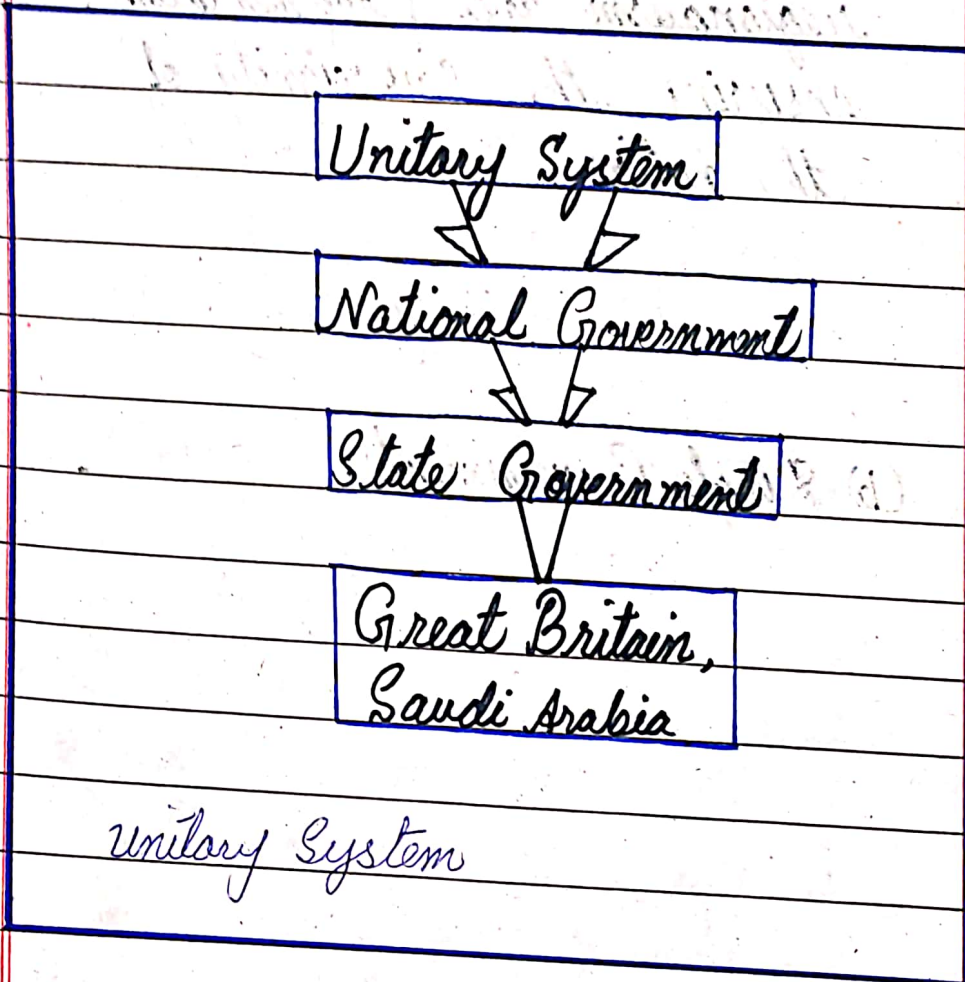 Unitary System
National Government
State Government
Great Britain,
Saudi Arabia
Unitary System